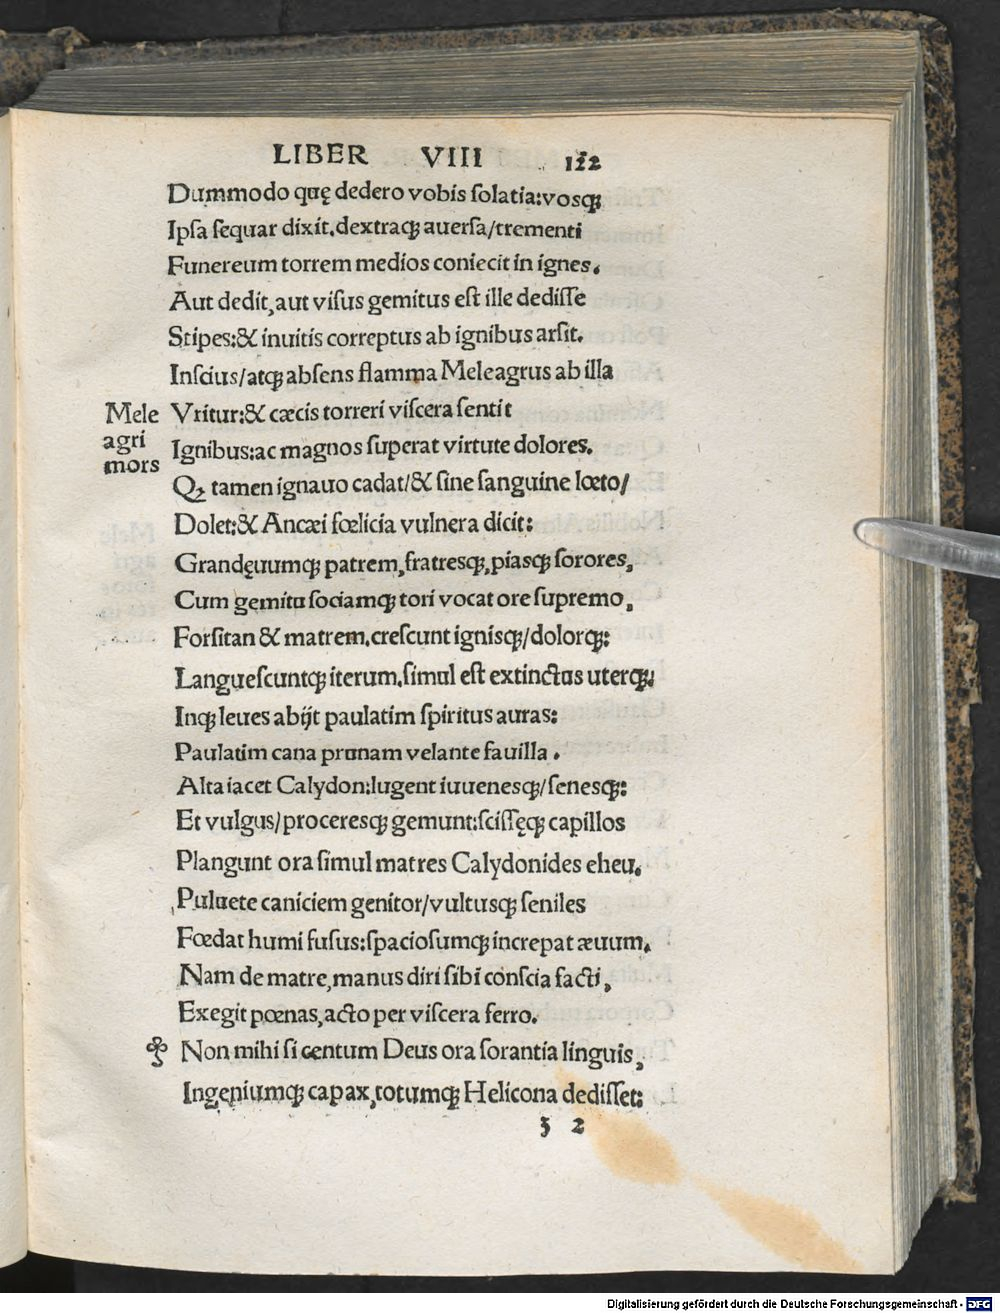 LIBER VIII 122
Dummodo quę dedero vobis ſolatia:vosqꝫ
Ipſa ſequar dixit.dextraqꝫ auerſa/trementi
Funereum torrem medios coniecit in ignes.
Aut dedit,aut viſus gemitus eſt ille dediſſe
Stipes:& inuitis correptus ab ignibus arſit.
Inſcius/atqꝫ abſens flamma Meleagrus ab illa
Vritur:& cæcis torreri viſcera ſentit
Ignibus:ac magnos ſuperat virtute dolores.
Qꝫ tamen ignauo cadat/& ſine ſanguine lœto/
Dolet:& Ancæi fœlicia vulnera dicit:
Grandęuumqꝫ patrem,fratresqꝫ,piasqꝫ ſorores,
Cum gemitu ſociamqꝫ tori vocat ore ſupremo,
Forſitan & matrem.creſcunt ignisqꝫ/dolorqꝫ:
Langueſcuntqꝫ iterum.ſimul eſt extinctus uterqꝫ:
Inqꝫ leues abijt paulatim ſpiritus auras:
Paulatim cana prunam velante fauilla .
Alta iacet Calydon:lugent iuuenesqꝫ/ſenesqꝫ:
Et vulgus/proceresqꝫ gemunt:ſciſſęqꝫ capillos
Plangunt ora ſimul matres Calydonides eheu.
Puluete caniciem genitor/vultusqꝫ ſeniles
Fœdat humi fuſus:ſpacioſumqꝫ increpat æuum.
Nam de matre,manus diri ſibi conſcia facti,
Exegit pœnas,acto per viſcera ferro.
Non mihi ſi centum Deus ora ſorantia linguis,
Ingeniumqꝫ capax,totumqꝫ Helicona dediſſet:
ʒ 2
Mele
agri
mors
Digitalisierung gefördert durch die Deutsche Forschungsgemeinschaft - DFG